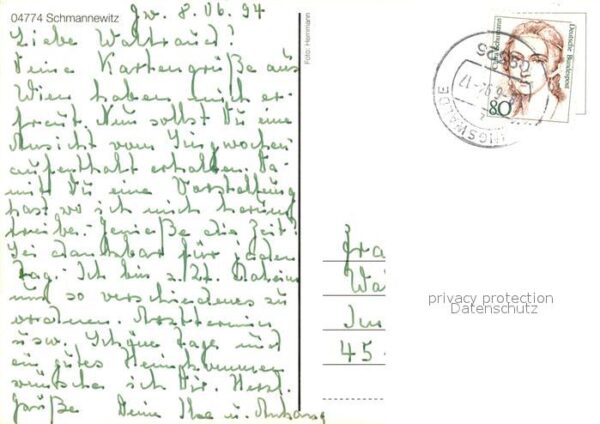 04774 Schmannewitz
Gw. 8.06.94
Liebe Waltraud!
Deine Kartengrüße aus
Wien haben mich er-
freut. Nun sollst Du eine
Ansicht vom
aufenthalt erhalten. Da-
mit Du eine Vorstellung
hast wo ich mich herum
treibe. Genieße die Zeit!
Sei dankbar für jeden
Tag. Ich bin z. Zt. Daheim
und so verschiedenes zu
ordnen. Arzttermin
usw. Schöne Tage und
ein gutes Heimkommen
wünsche ich Dir. Herzl.
Grüße Deine Ilse u. Anhang
Foto: Herrmann
Deutsche Bundespost
80
Fra
Wa
45
privacy protection
Datenschutz